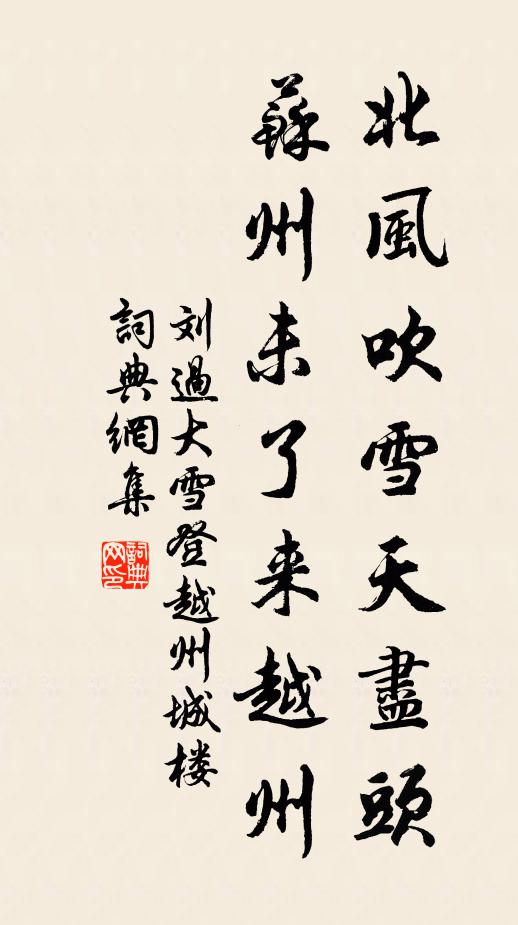 北風吹雪天盡頭
蘇州未了来越州
刘過大雪登越州城楼
詞典網集
詞典
网印